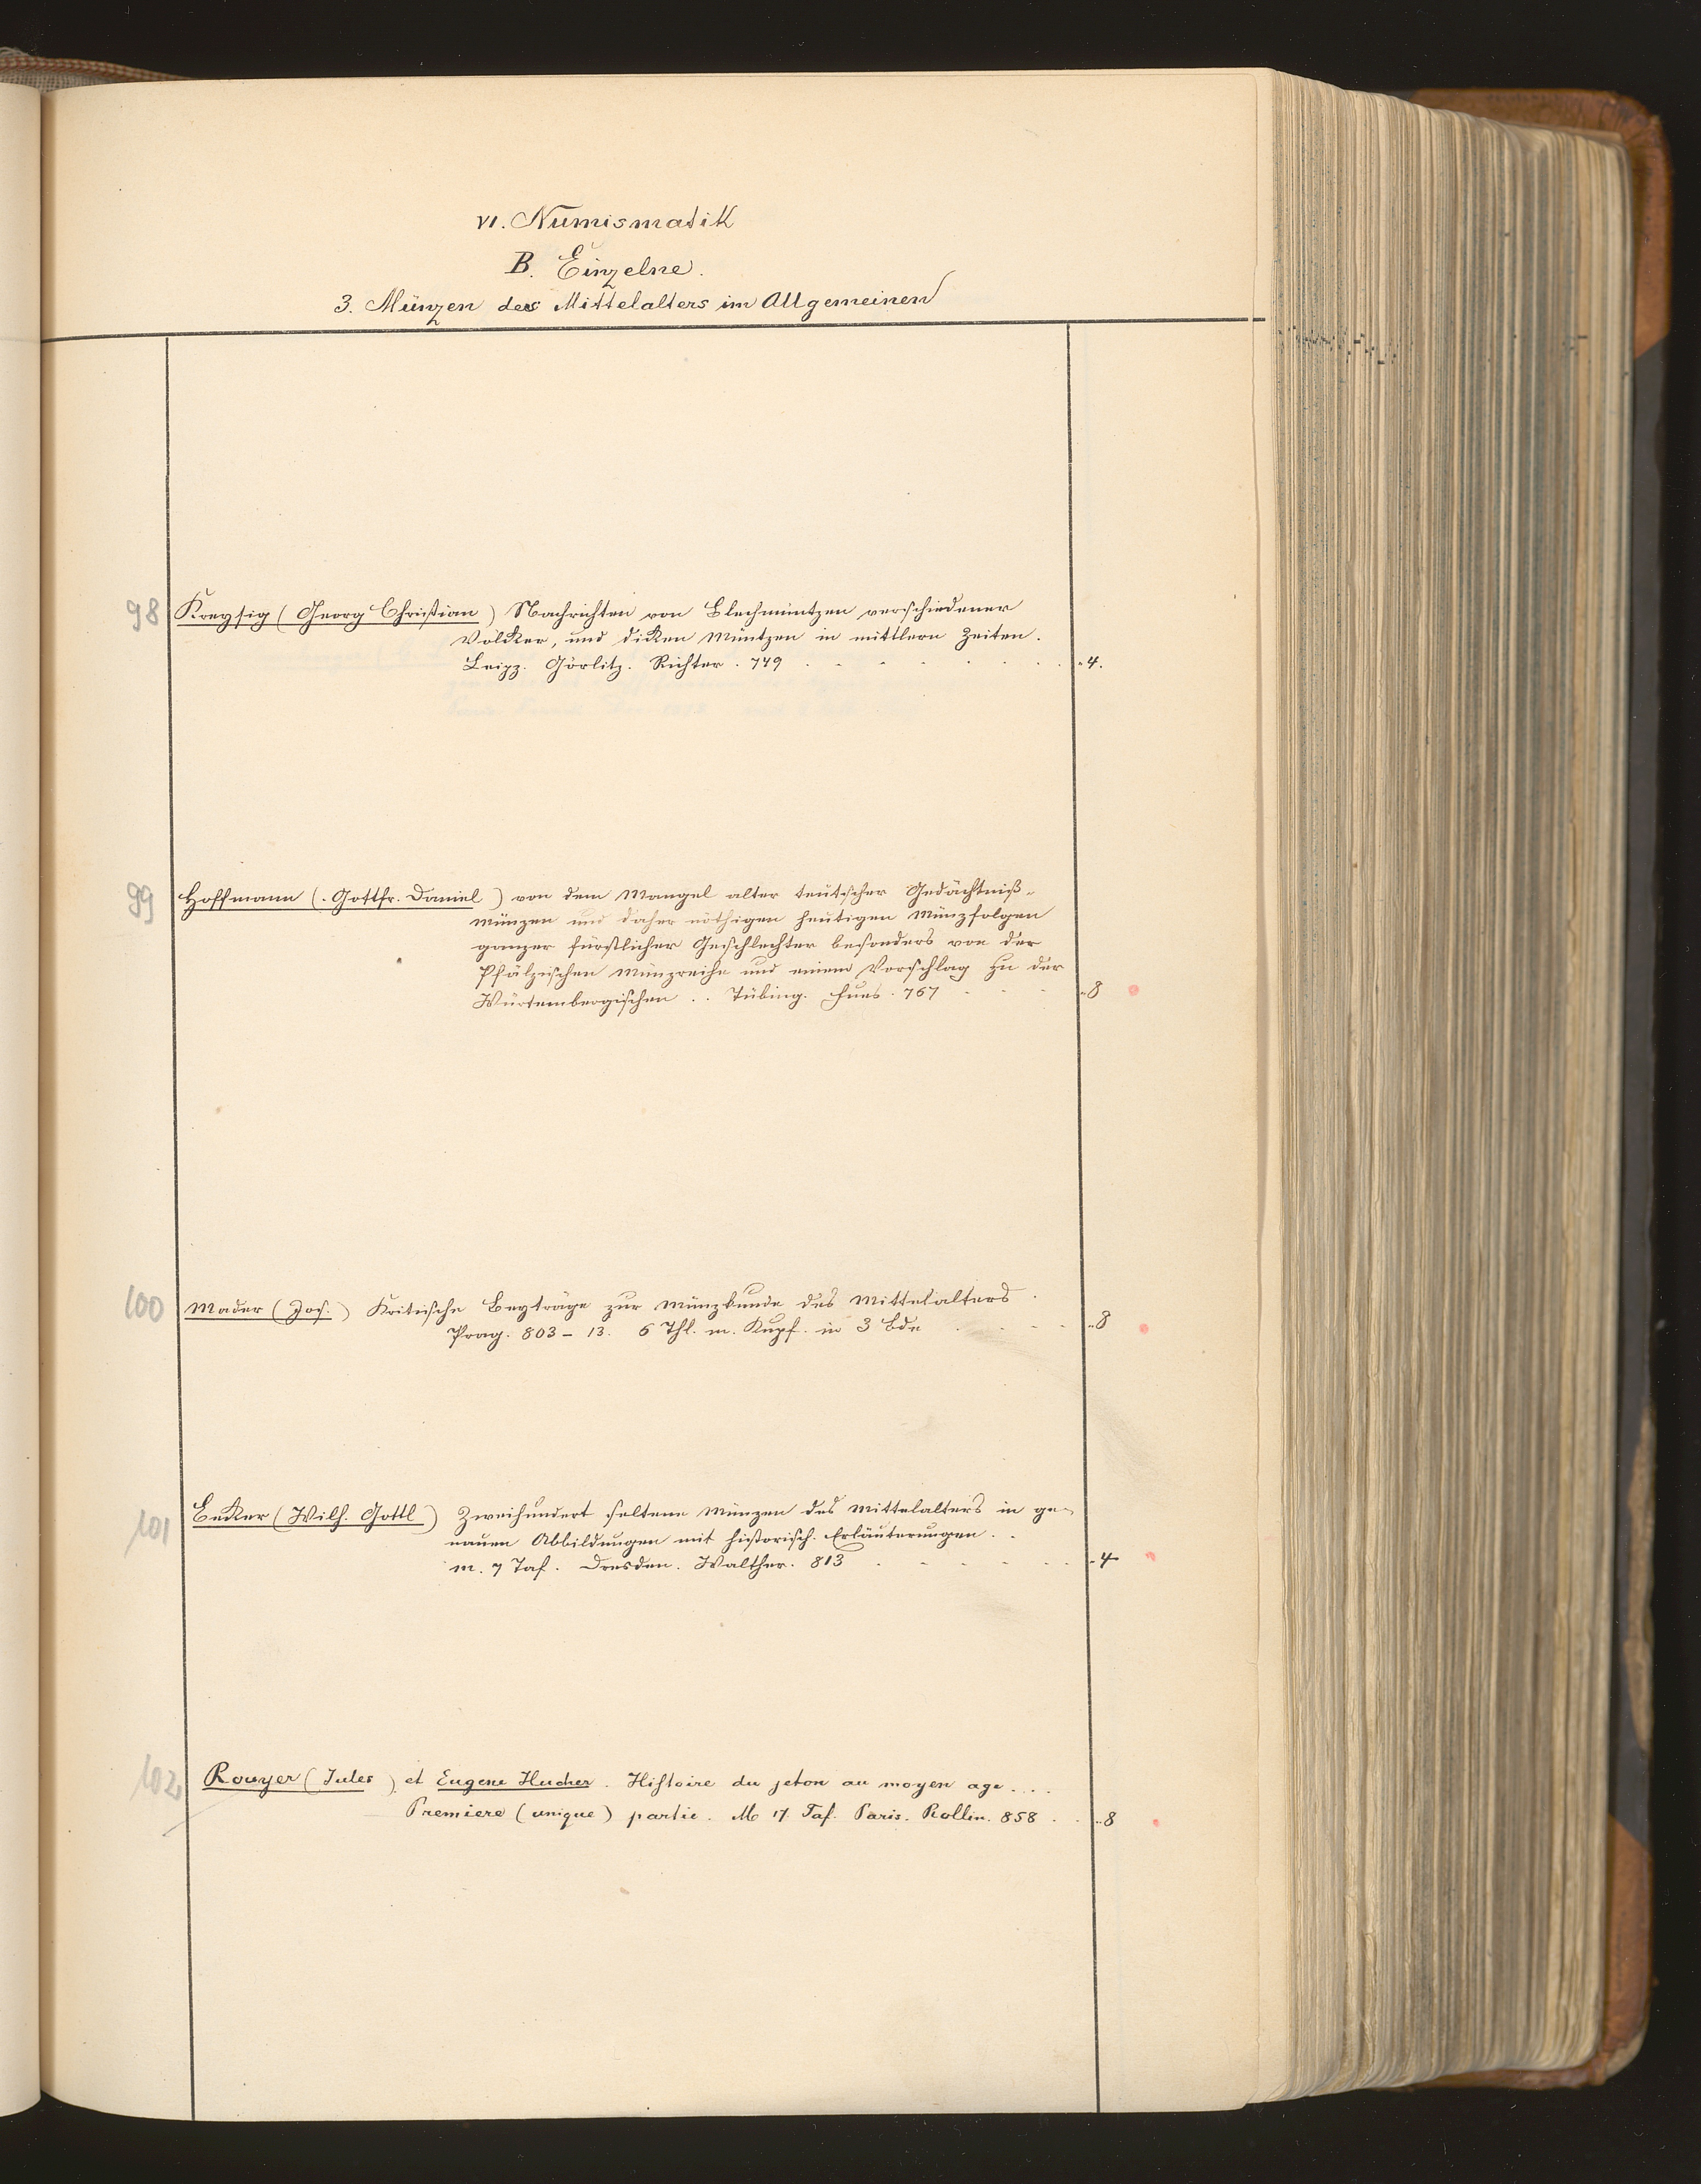 VI. Numismatik
B. Einzelne.
3. Münzen des Mittelalters im Allgemeinen
98 Kreysig (Georg Christian) Nachrichten von Blechmüntzen verschiedener
Völker, und dicken Müntzen in mittlern Zeiten.
Leipz. Görlitz. Richter. 749 . . . . . . . 4.
99 Hoffmann (Gottfr. Daniel) von dem Mangel alter teütscher Gedächtniß-
münzen und daher nöthigen heütigen Münzfolgen
ganzer fürstlicher Geschlechter besonders von der
Pfälzischen Münzreihe und einem Vorschlag zu der
Würtembergischen . . Tübing. 767 . . . . 8
100 Mader (Jos.) Kritische Beyträge zur Münzkunde des Mittelalters.
Prag. 803–13. 6 Thl. m. Kupf. in 3 Bde . . . . 8
101 Becker (Wilh. Gottl) Zweihundert seltene Münzen des Mittelalters in ge-
nauen Abbildungen mit historisch. Erläuterungen . .
m. 7 Taf. Dresden. Walther. 813 . . . . . . 4
102 Rouyer (Jules) et Eugene Hucher. Histoire du jeton au moyen age . . .
Premiere (unique) partie. M 17 Taf. Paris. Rollin. 858 . . . 8